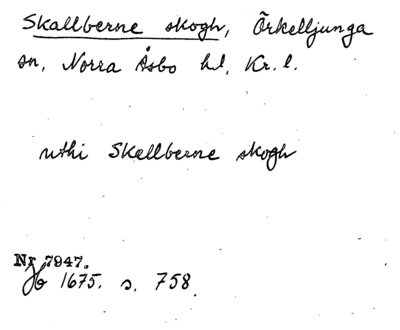 Skallberne skogh, Örkelljunga
sn, Norra Åsbo hd, Kr. l.
uthi Skallberne skogh
Nr 7947.
Jb 1675. s. 758